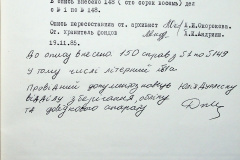 В опись внесено 148 ( сто сорок восемь ) дел
с № 1 по № 148.
Опись пересоставила ст. архивист А.И.Скорокова.
Ст. хранитель фондов А.И.Андриян.
19.11.85.
До опису внесено 150 справ з 51 по 5149
у тому числі літерний 81а
Провідний документознавець
відділу зберігання, обліку
та довідкового апарату